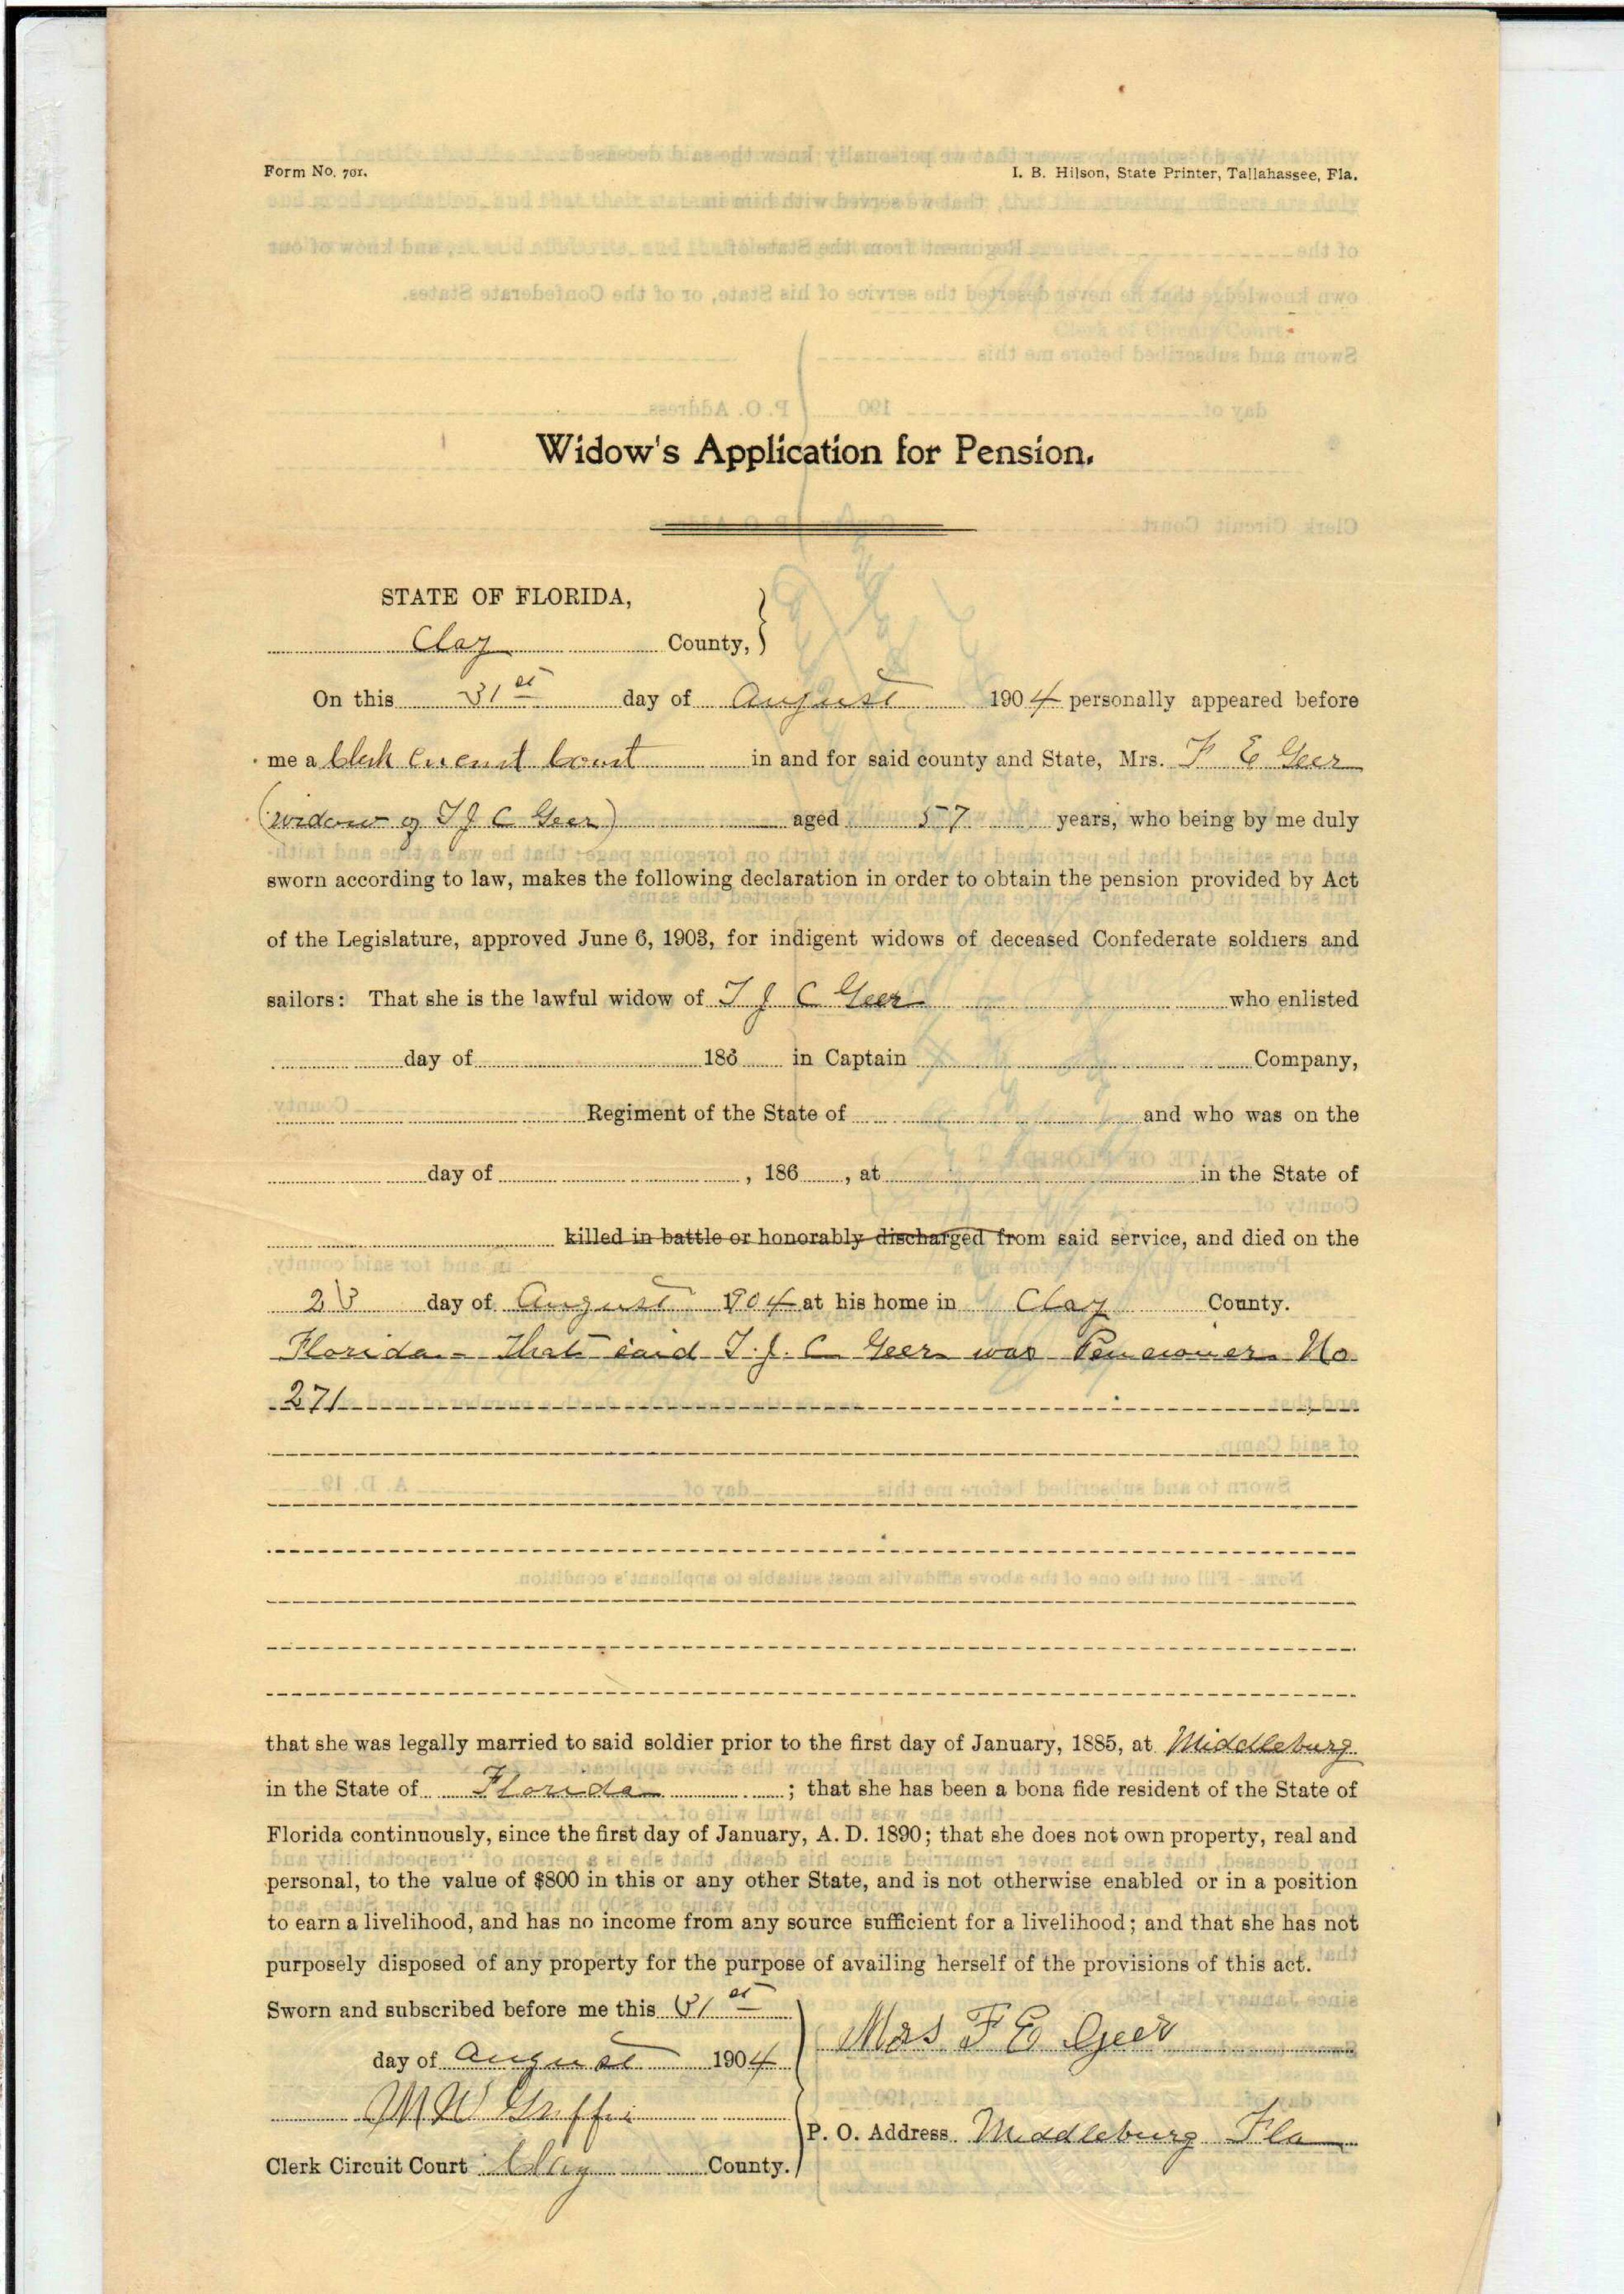 Form No. 701. I. B. Hilson, State Printer, Tallahassee, Fla.
Widow's Application for Pension.
STATE OF FLORIDA,
Clay County, }
On this 31st day of August 1904 personally appeared before
me a Clerk Circuit Court in and for said county and State, Mrs. F E Geer
(widow of T J C Geer) aged 57 years, who being by me duly
sworn according to law, makes the following declaration in order to obtain the pension provided by Act
of the Legislature, approved June 6, 1903, for indigent widows of deceased Confederate soldiers and
sailors: That she is the lawful widow of T J C Geer who enlisted
day of 186 in Captain Company,
Regiment of the State of and who was on the
day of , 186 , at in the State of
killed in battle or honorably discharged from said service, and died on the
23 day of August 1904 at his home in Clay County.
Florida - That said T. J. C Geer was Pensioner No
271
that she was legally married to said soldier prior to the first day of January, 1885, at Middleburg
in the State of Florida ; that she has been a bona fide resident of the State of
Florida continuously, since the first day of January, A. D. 1890; that she does not own property, real and
personal, to the value of $800 in this or any other State, and is not otherwise enabled or in a position
to earn a livelihood, and has no income from any source sufficient for a livelihood; and that she has not
purposely disposed of any property for the purpose of availing herself of the provisions of this act.
Sworn and subscribed before me this 31st
day of August 1904
Mrs F E Geer
M W Griffin
P. O. Address Middleburg Fla
Clerk Circuit Court Clay County.